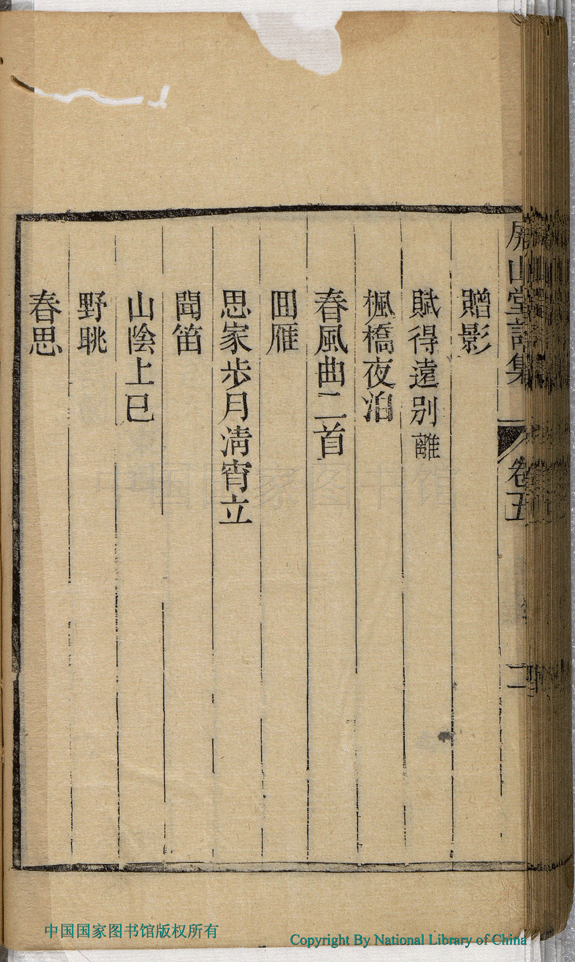 屏山堂詩集
卷五
二
贈影
賦得遠別離
楓橋夜泊
春風曲二首
囬雁
思家步月淸宵立
聞笛
山陰上巳
野眺
春思
中国国家图书馆
中国国家图书馆版权所有
Copyright By National Library of China